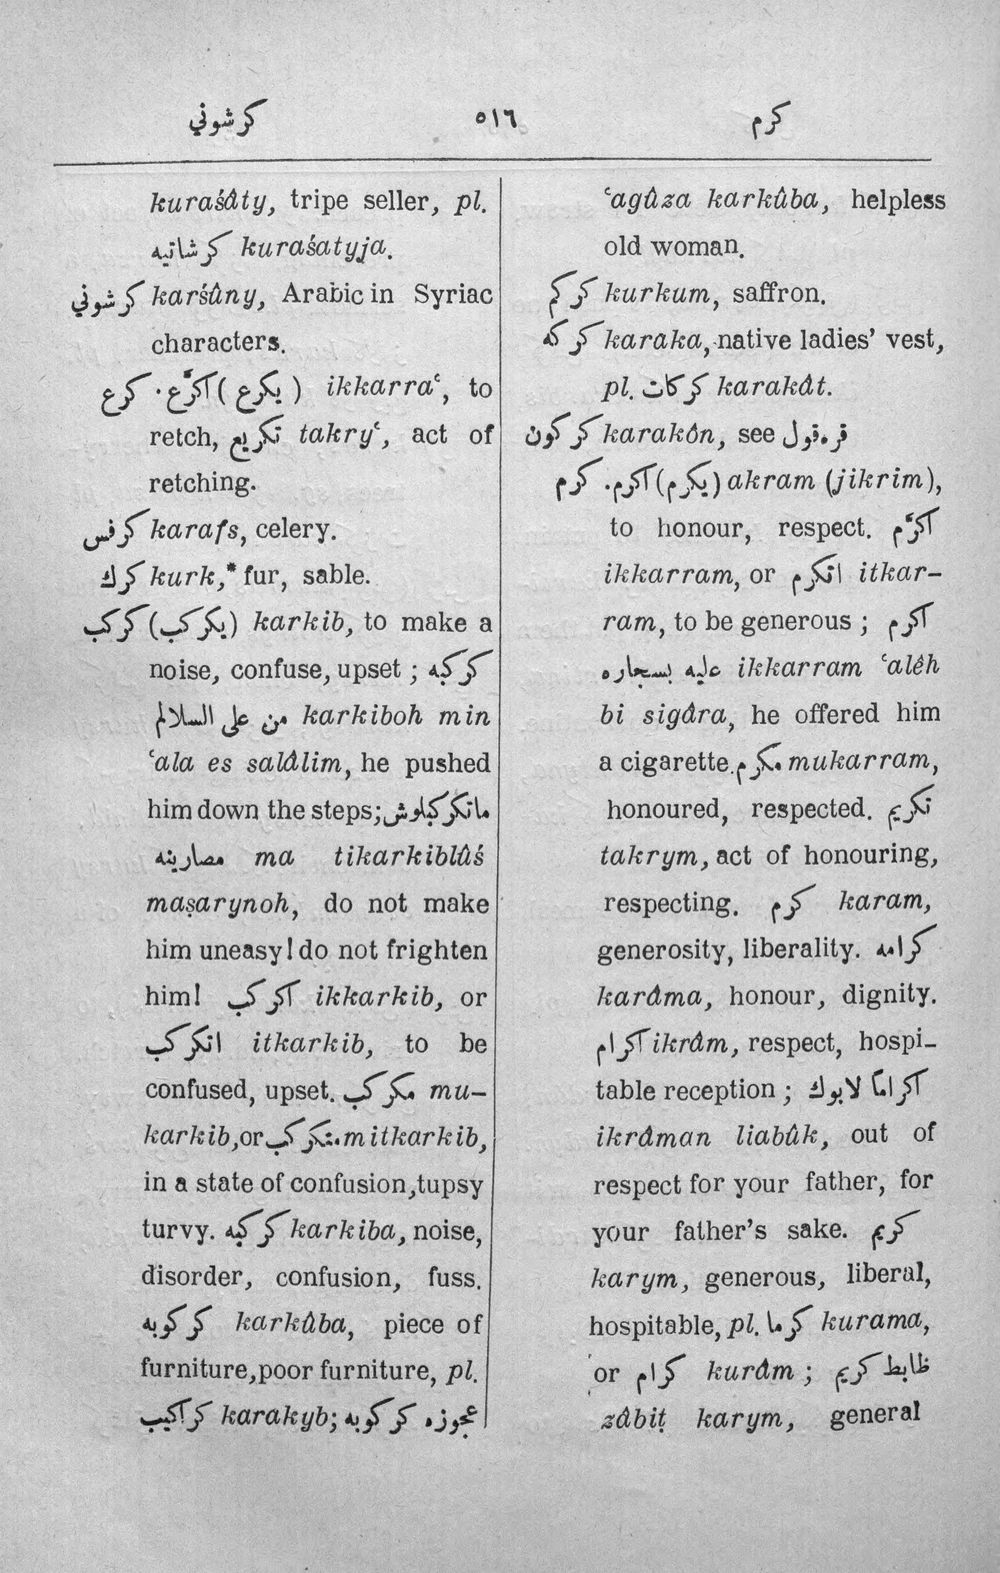 كرشوني ٥١٦ كرم
kuraśâty, tripe seller, pl.
كرشاتيه kuraśatyja.
كرشوني karśûny, Arabic in Syriac
characters.
كرع · اكرّع (يكرع) ikkarraʿ, to
retch, تكريع takryʿ, act of
retching.
كرفس karafs, celery.
كرك kurk,* fur, sable.
كركب (يكركب) karkib, to make a
noise, confuse, upset ; كركبه
من على السلالم karkiboh min
ʿala es salâlim, he pushed
him down the steps; ماتكركبلوش
مصارينه ma tikarkiblûś
maṣarynoh, do not make
him uneasy! do not frighten
him! اكركب ikkarkib, or
اتكركب itkarkib, to be
confused, upset. مكركب mu-
karkib, or متكركب mitkarkib,
in a state of confusion, tupsy
turvy. كركبه karkiba, noise,
disorder, confusion, fuss.
كركوبه karkûba, piece of
furniture, poor furniture, pl.
كراكيب karakyb; عجوزه كركوبه
ʿagûza karkûba, helpless
old woman.
كركم kurkum, saffron.
كركه karaka, native ladies’ vest,
pl. كركات karakât.
كركون karakôn, see قره قول
كرم · اكرم (يكرم) akram (jikrim),
to honour, respect. اكرّم
ikkarram, or اتكرم itkar-
ram, to be generous ; اكرم
عليه بسجاره ikkarram ʿalêh
bi sigâra, he offered him
a cigarette. مكرم mukarram,
honoured, respected. تكريم
takrym, act of honouring,
respecting. كرم karam,
generosity, liberality. كرامه
karâma, honour, dignity.
اكرام ikrâm, respect, hospi-
table reception ; اكرامًا لابوك
ikrâman liabûk, out of
respect for your father, for
your father’s sake. كريم
karym, generous, liberal,
hospitable, pl. كرما kurama,
or كرام kurâm ; ظابط كريم
zâbiṭ karym, general